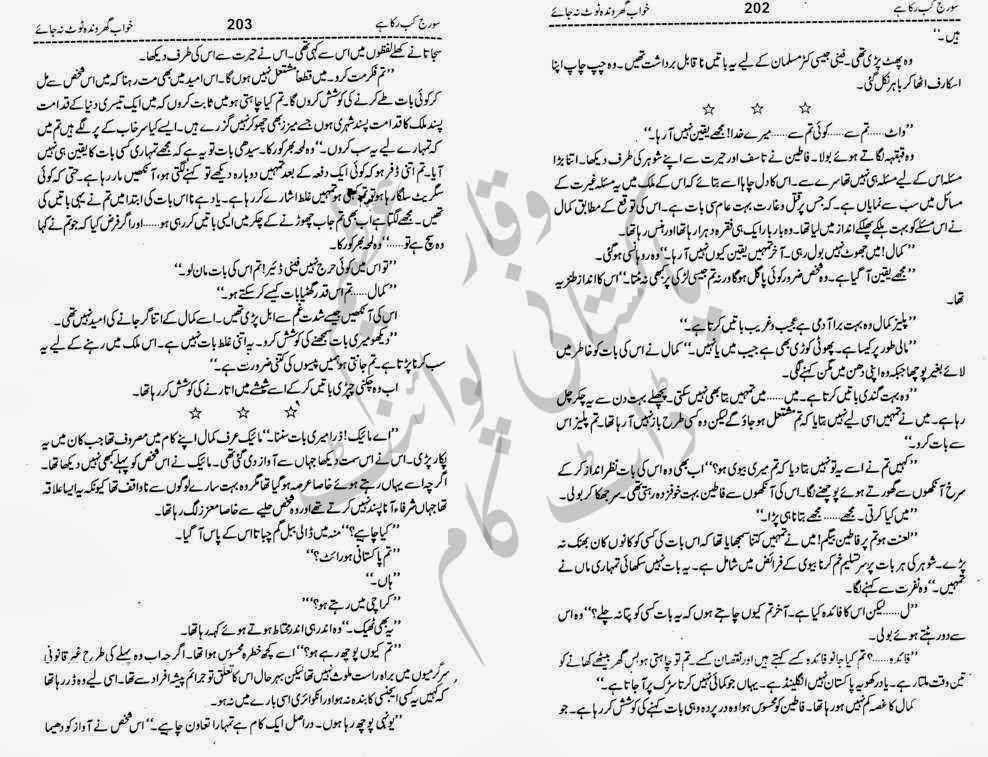 سورج کب رکا ہے 202 خواب گھروندہ ٹوٹ نہ جائے
ہیں۔‘‘
وہ پھٹ پڑی تھی۔ فینی جیسی کٹر مسلمان کے لیے یہ باتیں ناقابل برداشت تھیں۔ وہ چپ چاپ اپنا
اسکارف اٹھا کر باہر نکل گئی۔
☆ ☆ ☆
’’واٹ......تم سے......کوئی تم سے......میرے خدا! مجھے یقین نہیں آ رہا۔‘‘
وہ قہقہہ لگاتے ہوئے بولا۔ فاطین نے تاسف اور حیرت سے اپنے شوہر کی طرف دیکھا۔ اتنا بڑا
مسئلہ اس کے لیے مسئلہ ہی نہیں تھا سرے سے۔ اس کا دل چاہا اسے بتائے کہ اس کے ملک میں یہ مسئلہ غیرت کے
مسائل میں سب سے نمایاں ہے۔ کہ جس پر قتل و غارت بہت عام سی بات ہے۔ اس کی توقع کے مطابق کمال
نے اس مسئلے کو بہت ہلکے پھلکے انداز میں لیا تھا۔ وہ بار بار ایک ہی فقرہ دہرا رہا تھا اور ہنس رہا تھا۔
’’کمال! میں جھوٹ نہیں بول رہی۔ آخر تمہیں یقین کیوں نہیں آ رہا۔‘‘ وہ روہانسی ہو گئی۔
’’مجھے یقین آ گیا ہے۔ وہ شخص ضرور کوئی پاگل ہو گا ورنہ تم جیسی لڑکی پر کبھی نہ مٹتا۔‘‘ اس کا انداز طنزیہ
تھا۔
’’پلیز کمال وہ بہت برا آدمی ہے عجیب و غریب باتیں کرتا ہے۔‘‘
’’مالی طور پر کیسا ہے۔ پھوٹی کوڑی بھی ہے جیب میں یا نہیں۔‘‘ کمال نے اس کی بات کو خاطر میں
لائے بغیر پوچھا جبکہ وہ اپنی دھن میں مگن کہنے لگی۔
’’وہ بہت گندی باتیں کرتا ہے۔ میں......میں تمہیں بتا بھی نہیں سکتی۔ پچھلے بہت دن سے یہ چکر چل
رہا ہے۔ میں نے تمہیں اسی لیے نہیں بتایا کہ تم مشتعل ہو جاؤ گے لیکن وہ کسی طرح باز نہیں آ رہا تھا۔ تم پلیز اس
سے بات کرو۔‘‘
’’کہیں تم نے اسے یہ تو نہیں بتا دیا کہ تم میری بیوی ہو؟‘‘ اب بھی وہ اس کی بات نظر انداز کر کے
سرخ آنکھوں سے گھورتے ہوئے پوچھنے لگا۔ اس کی آنکھوں سے فاطین بہت خوفزدہ رہتی تھی۔ سر جھکا کر بولی۔
’’میں کیا کرتی۔ مجھے......مجھے بتانا ہی پڑا۔‘‘
’’لعنت ہو تم پر فاطین بیگم! میں نے تمہیں کتنا سمجھایا تھا کہ اس بات کی کسی کو کانوں کان بھنک نہ
پڑے۔ شوہر کی ہر بات پر سر تسلیم خم کرنا بیوی کے فرائض میں شامل ہے۔ یہ بات نہیں سکھائی تمہاری ماں نے
تمہیں۔‘‘ وہ نفرت سے کہنے لگا۔
’’ل......لیکن اس کا فائدہ کیا ہے۔ آخر تم کیوں چاہتے ہوں کہ یہ بات کسی کو پتا نہ چلے؟‘‘ وہ اس
سے دور ہٹتے ہوئے بولی۔
’’فائدہ......؟ تم کیا جانو فائدہ کسے کہتے ہیں اور نقصان کسے۔ تم تو چاہتی ہو بس گھر بیٹھے کھانے کو
تین وقت ملتا رہے۔ یاد رکھو یہ پاکستان نہیں انگلینڈ ہے۔ یہاں جو کمائی نہیں کرتا سڑک پر آ جاتا ہے۔‘‘
کمال کا غصہ کم نہیں ہو رہا تھا۔ فاطین کو محسوس ہوا وہ در پردہ وہی بات کہنے کی کوشش کر رہا ہے۔ جو
سورج کب رکا ہے 203 خواب گھروندہ ٹوٹ نہ جائے
سجاتا نے کھلے لفظوں میں اس سے کہی تھی۔ اس نے حیرت سے اس کی طرف دیکھا۔
’’تم فکر مت کرو۔ میں قطعاً مشتعل نہیں ہوں گا۔ اس امید میں بھی مت رہنا کہ میں اس شخص سے مل
کر کوئی بات طے کرنے کی کوشش کروں گا۔ تم کیا چاہتی ہو میں ثابت کروں کہ میں ایک تیسری دنیا کے قدامت
پسند ملک کا قدامت پسند شہری ہوں جسے میزز بھی چھو کر نہیں گزرے ہیں۔ ایسے کیا سرخاب کے پر لگے ہیں تم میں
کہ تمہارے لیے یہ سب کروں۔‘‘ وہ لمحہ بھر کو رکا۔ سیدھی بات تو یہ ہے کہ مجھے تمہاری کسی بات کا یقین ہی نہیں
آیا۔ تم اتنی ڈفر ہو کہ کوئی ایک دفعہ کے بعد تمہیں دوبارہ دیکھے تو کہنے لگتی ہو، آنکھیں مار رہا ہے۔ حتیٰ کہ کوئی
سگریٹ سلگا رہا ہو تو بھی ہو تمہیں غلط اشارے کر رہا ہے۔ یاد ہے نا اس بات کی ابتدا میں تم نے یہی باتیں کی
تھیں۔ مجھے لگتا ہے اب بھی تم جاب چھوڑنے کے چکر میں ایسی باتیں کر رہی ہو......اور اگر فرض کیا کہ جو تم نے کہا
وہ سچ ہے تو......‘‘ وہ لمحہ بھر کو رکا۔
’’تو اس میں کوئی حرج نہیں فینی ڈئیر! تم اس کی بات مان لو۔‘‘
’’کمال......تم اس قدر گھٹیا بات کیسے کر سکتے ہو۔‘‘
اس کی آنکھیں جیسے شدت غم سے ابل پڑی تھیں۔ اسے کمال کے اتنا گر جانے کی امید نہیں تھی۔
’’دیکھو میری بات سمجھنے کی کوشش کرو۔ یہ اتنی غلط بات نہیں ہے۔ اس ملک میں رہنے کے لیے یہ
سب کرنا پڑتا ہے۔ تم جانتی ہو ہمیں پیسوں کی کتنی ضرورت ہے۔‘‘
اب وہ چکنی چپڑی باتیں کر کے اسے شیشے میں اتارنے کی کوشش کر رہا تھا۔
☆ ☆ ☆
’’اے مائیک! ذرا میری بات سننا۔‘‘ مائیک عرف کمال اپنے کام میں مصروف تھا جب کان میں یہ
پکار پڑی۔ اس نے اس سمت دیکھا جہاں سے آواز دی گئی تھی۔ مائیک نے اس شخص کو پہلے کبھی نہیں دیکھا تھا۔
اگرچہ اسے یہاں رہتے ہوئے خاصا عرصہ ہو گیا تھا مگر وہ بہت سارے لوگوں سے ناواقف تھا کیونکہ یہ ایسا علاقہ
تھا جہاں شرفاء آنا پسند نہیں کرتے تھے اور وہ شخص حلیے سے خاصا معزز لگ رہا تھا۔
’’کیا چاہیے؟‘‘ منہ میں ڈالی ببل گم چباتا اس کے پاس آ گیا۔
’’تم پاکستانی ہو رائٹ؟‘‘
’’ہاں۔‘‘
’’کراچی میں رہتے ہو؟‘‘
’’یہ بھی ٹھیک۔‘‘ وہ اندر ہی اندر محتاط ہوتے ہوئے کہہ رہا تھا۔
’’تم کیوں پوچھ رہے ہو؟‘‘ اسے کچھ خطرہ محسوس ہوا تھا۔ اگرچہ اب وہ پہلے کی طرح غیر قانونی
سرگرمیوں میں براہ راست ملوث نہیں تھا لیکن بہر حال اس کا تعلق تو جرائم پیشہ افراد سے تھا۔ اسی لیے وہ ڈر رہا تھا
کہ کہیں یہ کسی ایجنسی کا بندہ نہ ہو اور انکوائری اسی بارے میں نہ ہو۔
’’یونہی پوچھ رہا ہوں۔ دراصل ایک کام ہے تمہارا تعاون چاہیے۔‘‘ اس شخص نے آواز کو دھیما
پاکستانی پوائنٹ
ڈاٹ کام